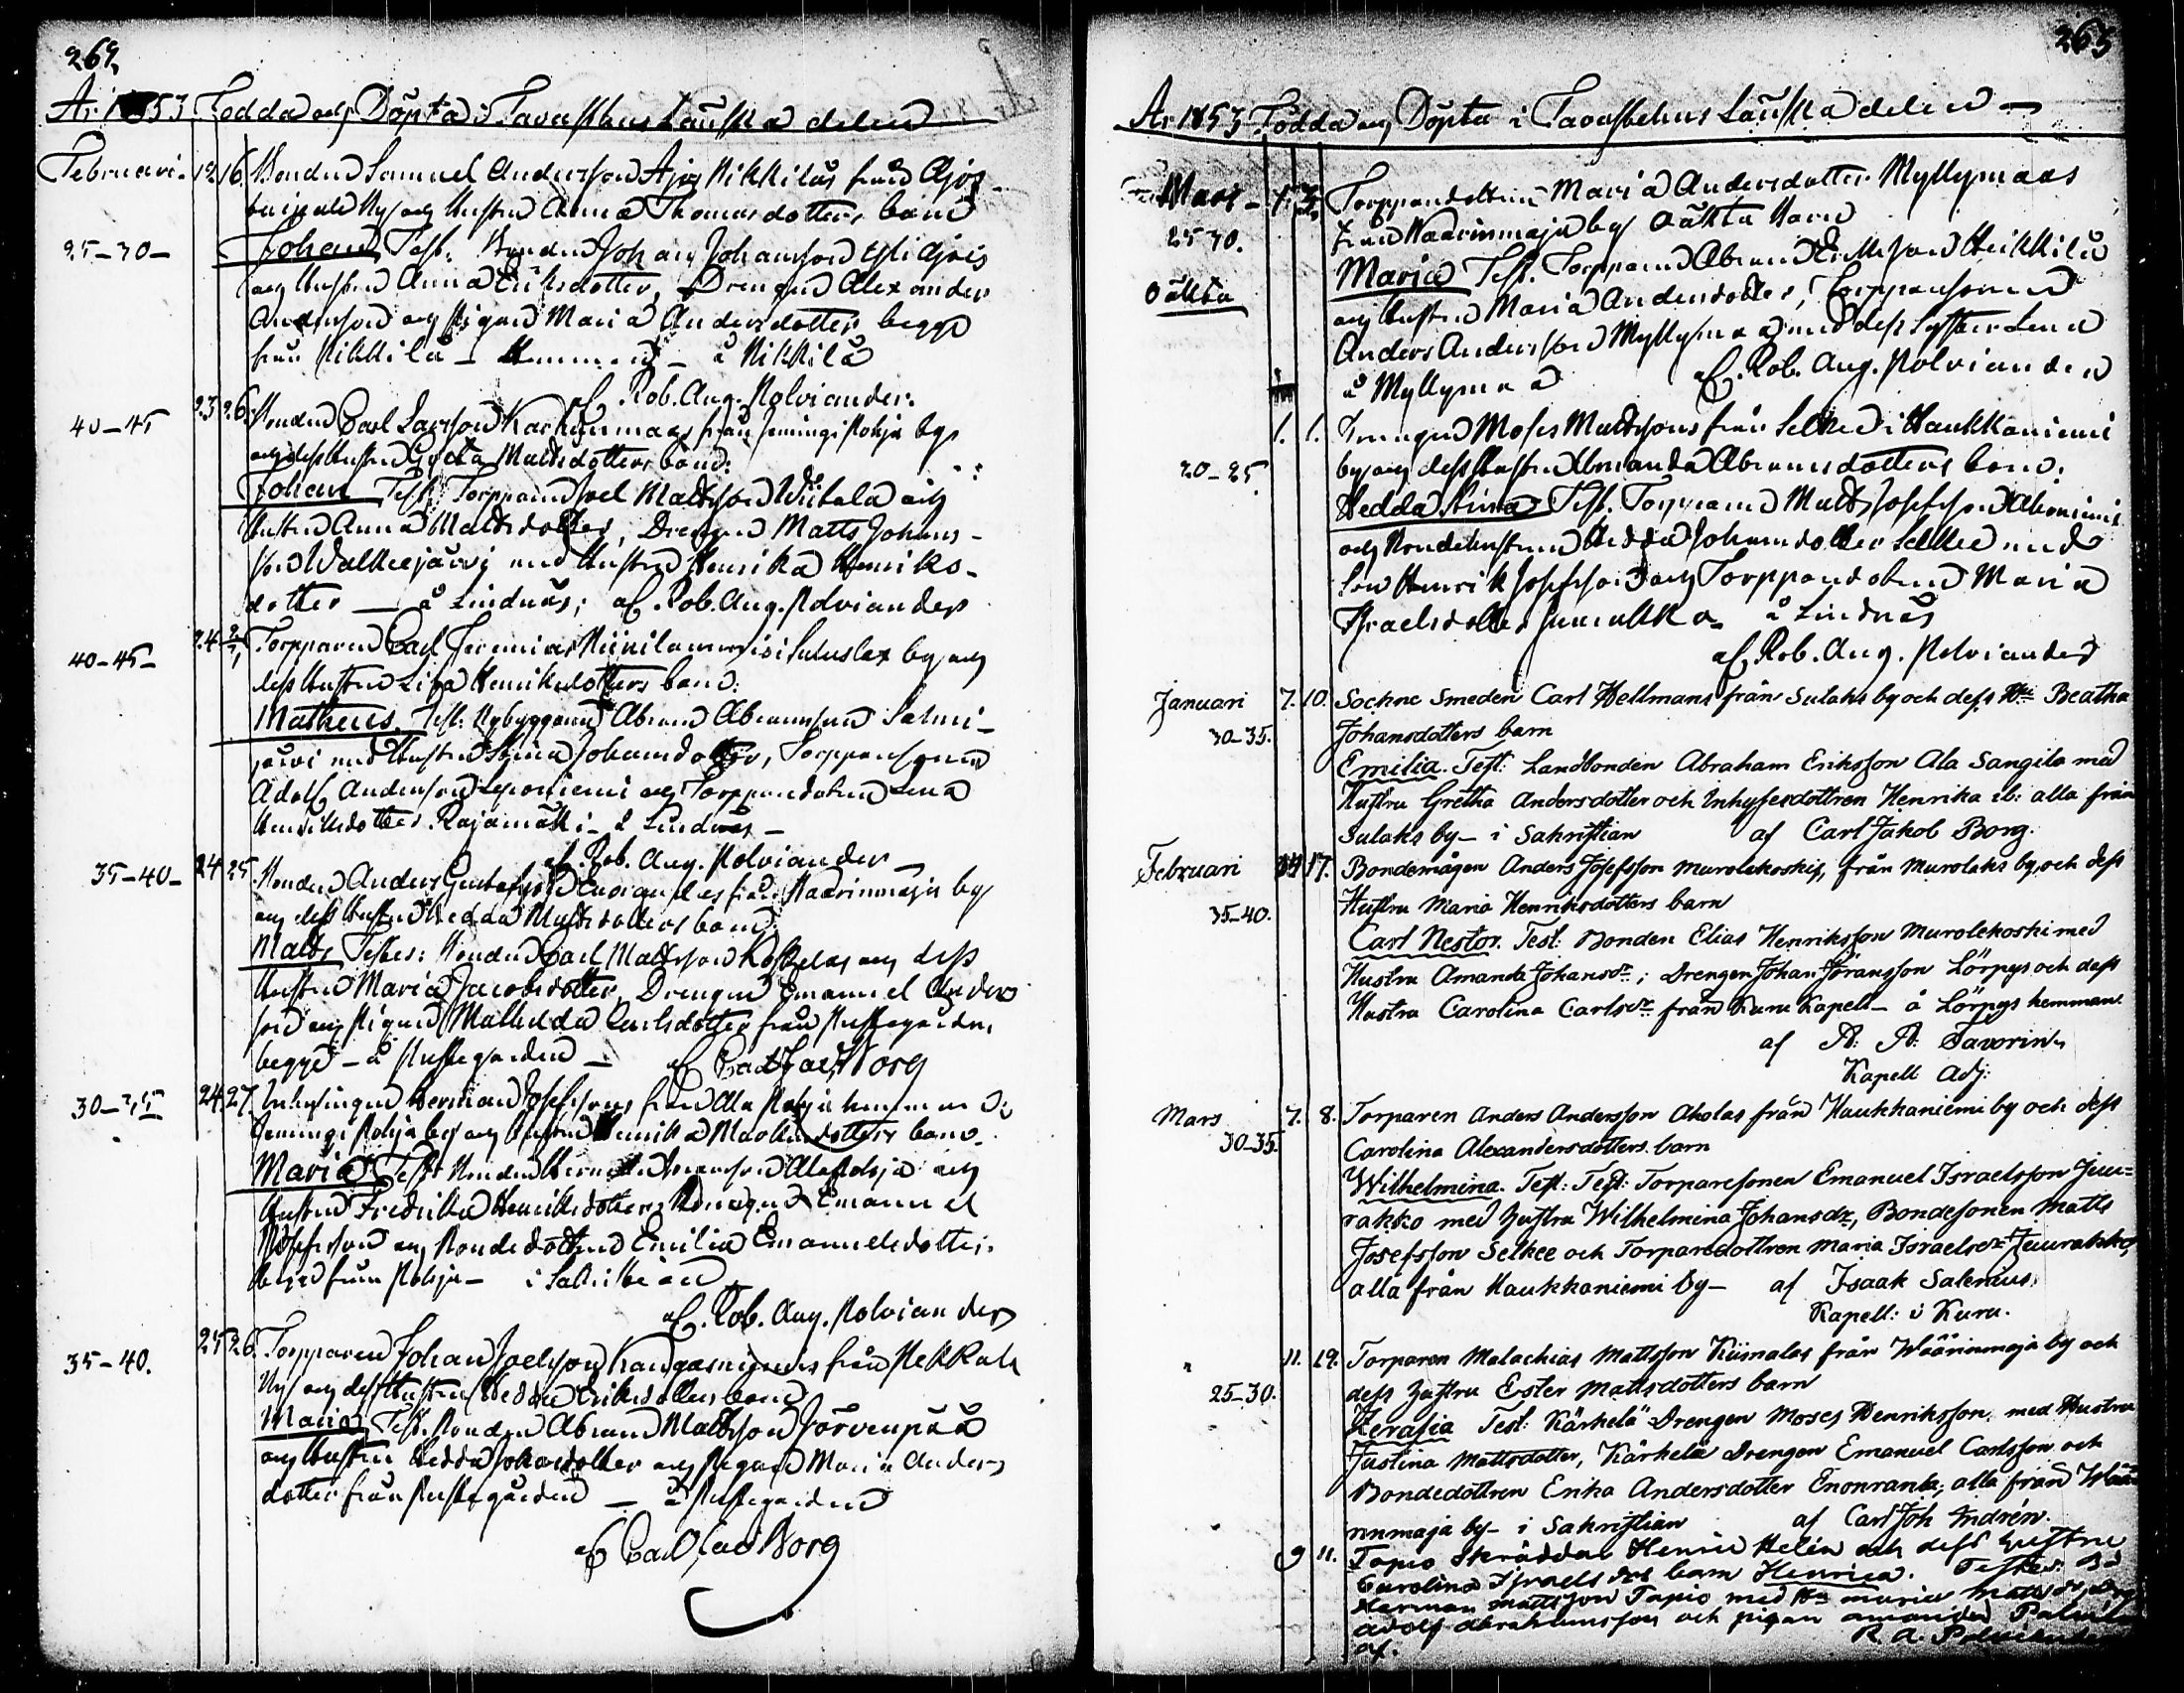 262
Ar 1853 Födda och Döpta i Tavastehus Länska delen
Februari 12. 16. Bonden Samuel Andersson Ajos Nikkiläs från Ajos
by och Hustrun Anna Thomasdotters barn
25-30- Johan Test. Bonden Johan Johansson Ajois
och Hustrun Anna Eriksdotter, Drengen Alexander
Andersson och Pigan Maria Andersdotter begge
från Nikkilä - Hemman - å Nikkilä
af Rob. Aug. Polviander.
40-45 23 26. Bonden Carl Larsson Karhunmaas från Jeminginpohja by
och dess Hustru Greta Mattsdotters barn:
Johan Test: Torpparen Joel Mattsson Wiitala och
Hustrun Anna Mattsdotter, Drengen Matts Johans-
son Walkeejärvi med Hustrun Henrika Henriks-
dotter — å Lindnäs; af Rob. Aug. Polviander
40-45- 24 Torpparen Carl Jeremias Niinilammis i Luluslax by och
dess Hustrun Lisa Henriksdotters barn:
Matheus. Test: Nybyggaren Abram Abramsson Salmi-
järvi med Hustrun Stina Johansdotter, Torpparesonen
Adolf Andersson Leponiemi och Torpparedottren Lena
Henriksdotter Rajamäki - å Lindnäs -
af Rob. Aug. Polviander
35-40- 24 25 Bonden Anders Gustafsson Enorandas från Wäärinmaja by
och dess Hustru Hedda Mattsdotters barn:
Matts Testes: Bonden Carl Mattsson Koskelas och dess
Hustrun Maria Jacobsdotter, Drengen Emanuel Anders
son och Pigan Mathilda Carlsdotter från Prestegården
begge - å Prestegården - af Carl Jac. Borg
30-35 24 27. Inhysingen Herman Josefssons från Ala Pohja hemman i
Jeminginpohja by och Hustrun Henrika Markusdotters barn.
Maria Test Bonden Herman Hermansson Alapohja och
Hustrun Fredrika Henriksdotter, Drengen Emanuel
Josefsson och Bondedottren Emilia Emanuelsdotter
begge från Pohja - i Sakristian
af Rob. Aug. Polviander
35-40. 25 26. Torpparen Johan Joelsson Kangasniemis från Pekkala
by och dess Hustru Hedda Eriksdotters barn
Maria Test. Bonden Abram Mattsson Jorvenpää
och Hustrun Hedda Johansdotter och Pigan Maria Anders
dotter från Prestegården — å Prestegården
af Carl Jac. Borg
263
Ar 1853 Födda och Döpta i Tavastehus Länska delen —
Mars - 1. Torpparedottren Maria Andersdotter Myllymaas
25 30. från Wäärinmaja by Oäkta barn
Oäkta Maria Test. Torpparen Abram Eriksson Heikkilä
och Hustrun Maria Andersdotter, Torpparesonen
Anders Andersson Myllymaa med dess Syster Lena
å Myllymaa af Rob. Aug. Polviander
1. 1. Drengen Moses Mattssons från Selkee i Haukkaniemi
20-25. by och dess Hustrun Amanda Abramsdotters barn.
Hedda Stina Test. Torpparen Matts Josefsson Ahoniemi
och Bondehustrun Hedda Johansdotter Selkee med
Son Henrik Josefsson och Torpparedottren Maria
Israelsdotter Juurakko å Lindnäs
af Rob. Aug. Polviander
Januari 7. 10. Sockne Smeden Carl Hellmans från Sulaks by och dess Hu Beatha
30-35. Johansdotters barn
Emilia. Test: Landbonden Abraham Eriksson Ala Sangila med
Hustru Gretha Andersdotter och Inhysesdottren Henrika ib: alla från
Sulaks by - i Sakristian af Carl Jakob Borg.
Februari 14 17. Bondemågen Anders Josefsson Murolekoskis, från Murolaks by och dess
35-40. Hustru Maria Henriksdotters barn
Carl Nestor. Test: Bonden Elias Henriksson Murolekoski med
Hustru Amanda Johansdr; Drengen Johan Jöransson Lörpys och dess
Hustru Carolina Carlsdr från Kuru Kapell - å Lörpys hemman.
af A: A: Favorin,
Kapell Adj:
Mars 7. 8. Torparen Anders Andersson Aholas från Haukkaniemi by och dess
30-35. Carolina Alexandersdotters barn
Wilhelmina. Test: Test: Torparesonen Emanuel Israelsson Juu=
rakko med Hustru Wilhelmina Johansdr, Bondesonen Matts
Josefsson Selkee och Torparedottren Maria Israelsdr Juurakko,
alla från Haukkaniemi by - af Isaak Salenius,
Kapell: i Kuru.
11. 19. Torparen Malachias Mattsson Kiimalas från Wäärinmaja by och
25-30. dess Hustru Ester Mattsdotters barn
Serafia Test: Kärkelä Drengen Moses Henriksson med Hustru
Justina Mattsdotter, Kärkelä Drengen Emanuel Carlsson och
Bondedottren Erika Andersdotter Enonranta; alla från Wää
rinmaja by - i Sakristian af Carl Joh Indrén.
9 11. Tapio Skräddar Henric Helén och dess Hustru
Carolina Israels drs barn Henrica. Testes: B:
Herman Mattsson Tapio med Hu Maria Mattsdr, Dr
Adolf Abrahamsson och pigan Amanda
af. R. A. Polviander